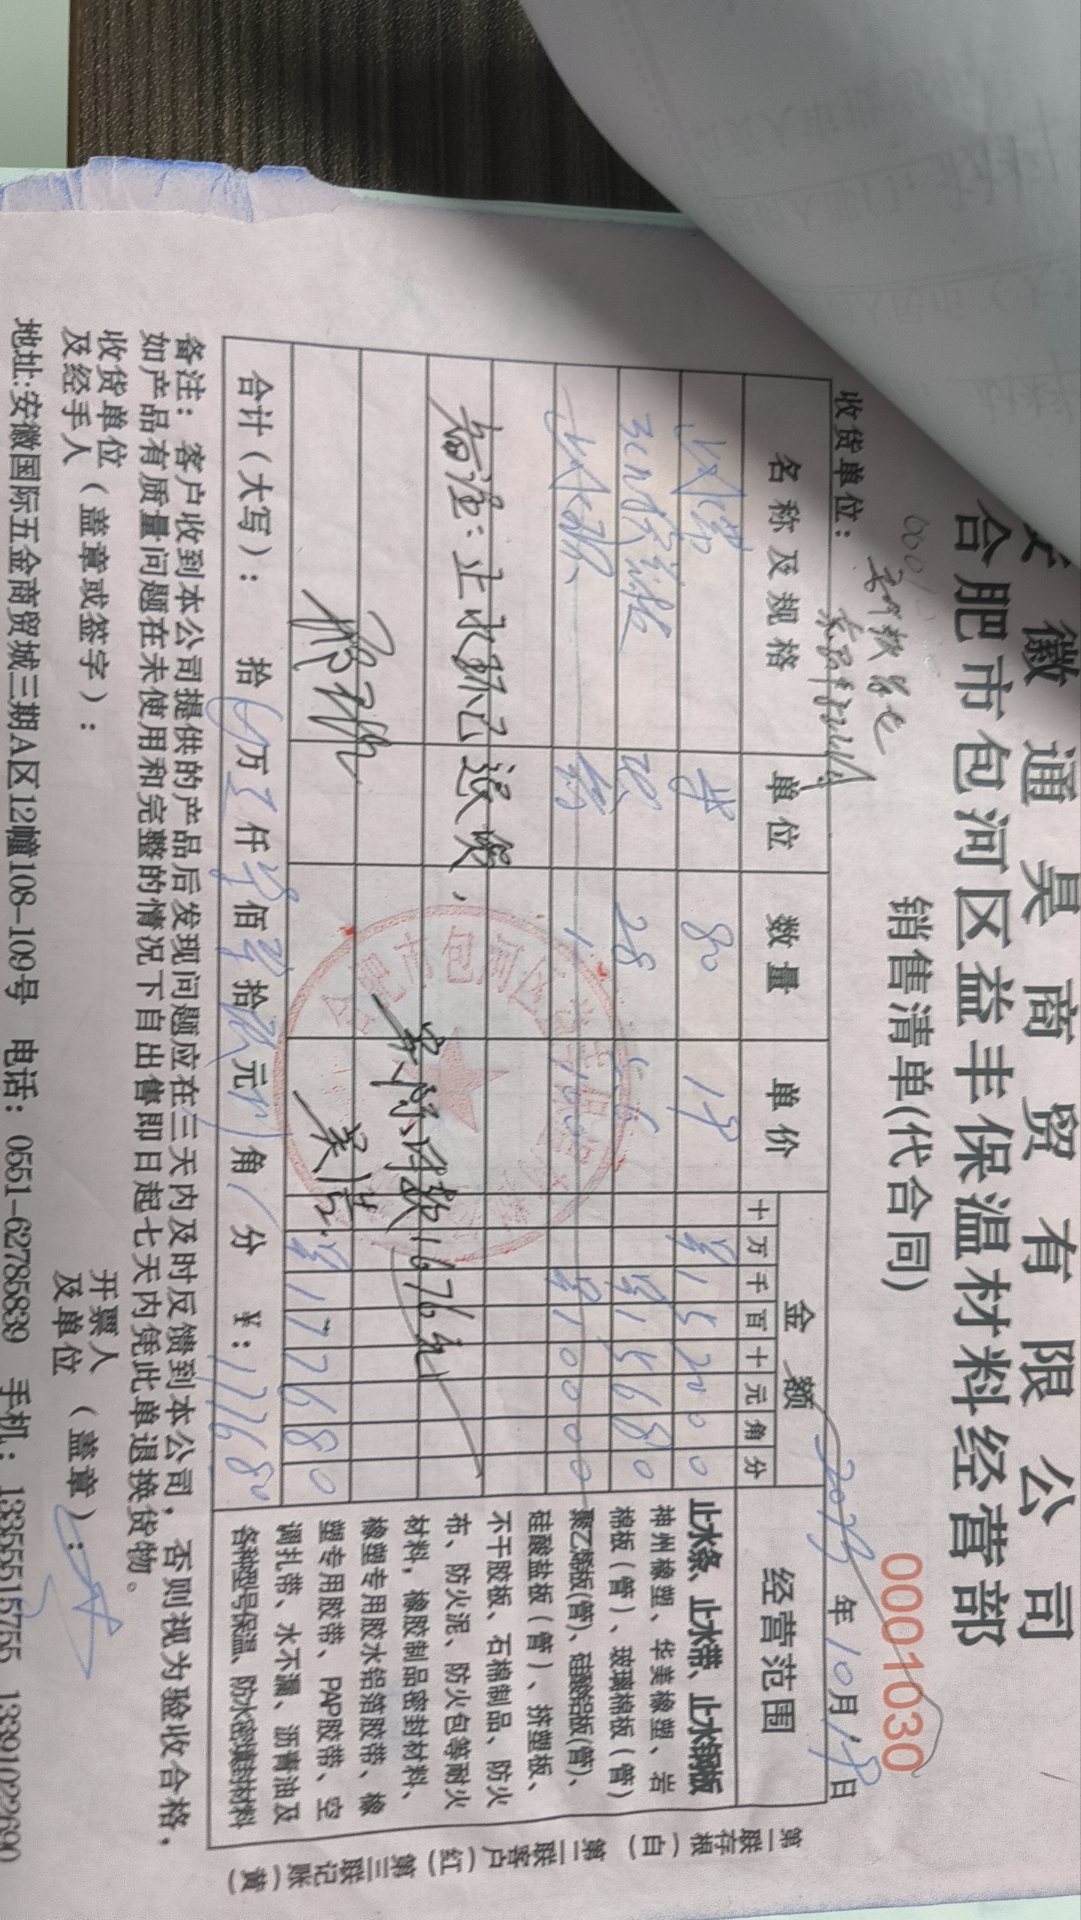 徽通昊商贸有限公司
合肥市包河区益丰保温材料经营部
销售清单(代合同)
0001030
收货单位：
年10月19日
名称及规格 单位 数量 单价 金额 经营范围
十 万 千 百 十 元 角 分
80 19 ¥152000
28 56 ¥15680
1 100 ¥10000
备注：止水环已退货，
实际付款1676元
吴浩
¥177680
合计（大写）： 拾 万 仟 佰 拾 元 角 分 ¥：177680
止水条、止水带、止水钢板
神州橡塑、华美橡塑、岩
棉板（管）、玻璃棉板（管）
聚乙烯板(管)、硅酸铝板(管)、
硅酸盐板（管）、挤塑板、
不干胶板、石棉制品、防火
布、防火泥、防火包等耐火
材料，橡胶制品密封材料、
橡塑专用胶水铝箔胶带、橡
塑专用胶带、PAP胶带、空
调扎带、水不漏、沥青油及
各种型号保温、防水密填封材料
第一联存根（白） 第二联客户（红） 第三联记账（黄）
备注：客户收到本公司提供的产品后发现问题应在三天内及时反馈到本公司，否则视为验收合格，
如产品有质量问题在未使用和完整的情况下自出售即日起七天内凭此单退换货物。
收货单位
及经手人（盖章或签字）：
开票人
及单位（盖章）：
地址:安徽国际五金商贸城三期A区12幢108-109号 电话：0551-62785839 手机：13355515755 13391022690